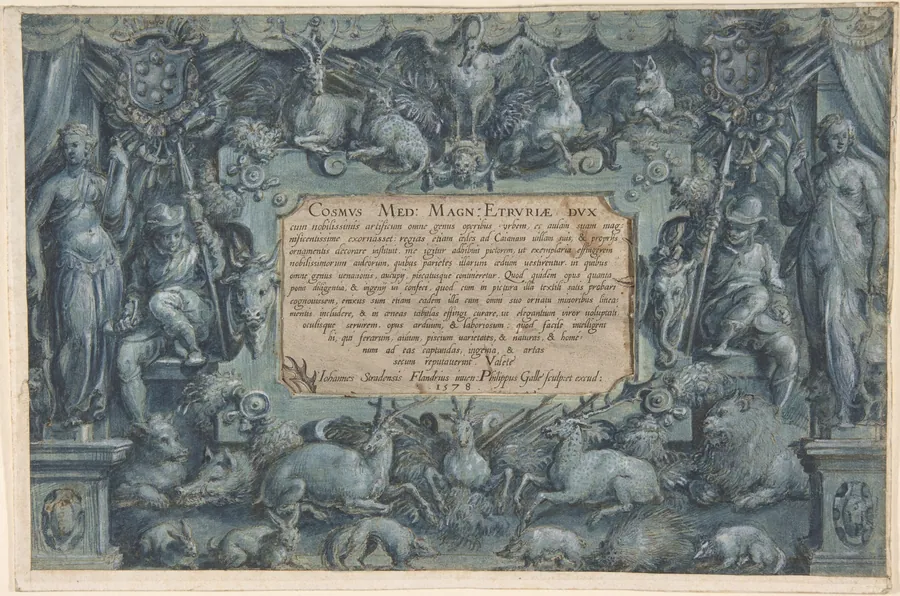 COSMVS MED: MAGN: ETRVRIÆ DVX
cum nobilissimis artificum omne genus operibus vrbem, ac aulam suam mag
nificentissime exornasset: regias etiam ædes ad Caianum uillam suis, & proprijs
ornamentis decorare instituit. me igitur adhibuit pictorem, ut exemplaria effingerem
nobilissimorum aulæorum, quibus parietes illarum ædium uestirentur in quibus
omne genus uenationis, aucupij, piscatusque contineretur. Quod quidem opus quanta
potui diligentia, & ingenio confeci, quod cum in pictura illa textili satis probare
cognouissem, enixus sum etiam eadem illa cum omni suo ornatu minoribus linea
mentis includere, & in æneas tabulas effingi curare, ut elegantium viror voluptati
oculisque seruirem. opus arduum, & laboriosum; quod facile intelligent
hi, qui ferarum, auium, piscium uarietates, & naturas, & homi
num ad eas captandas, ingenia, & artas
secum reputauerint Valete
Iohannes Stradensis Flandrius inuen: Philippus Galle sculpsit excud:
1578